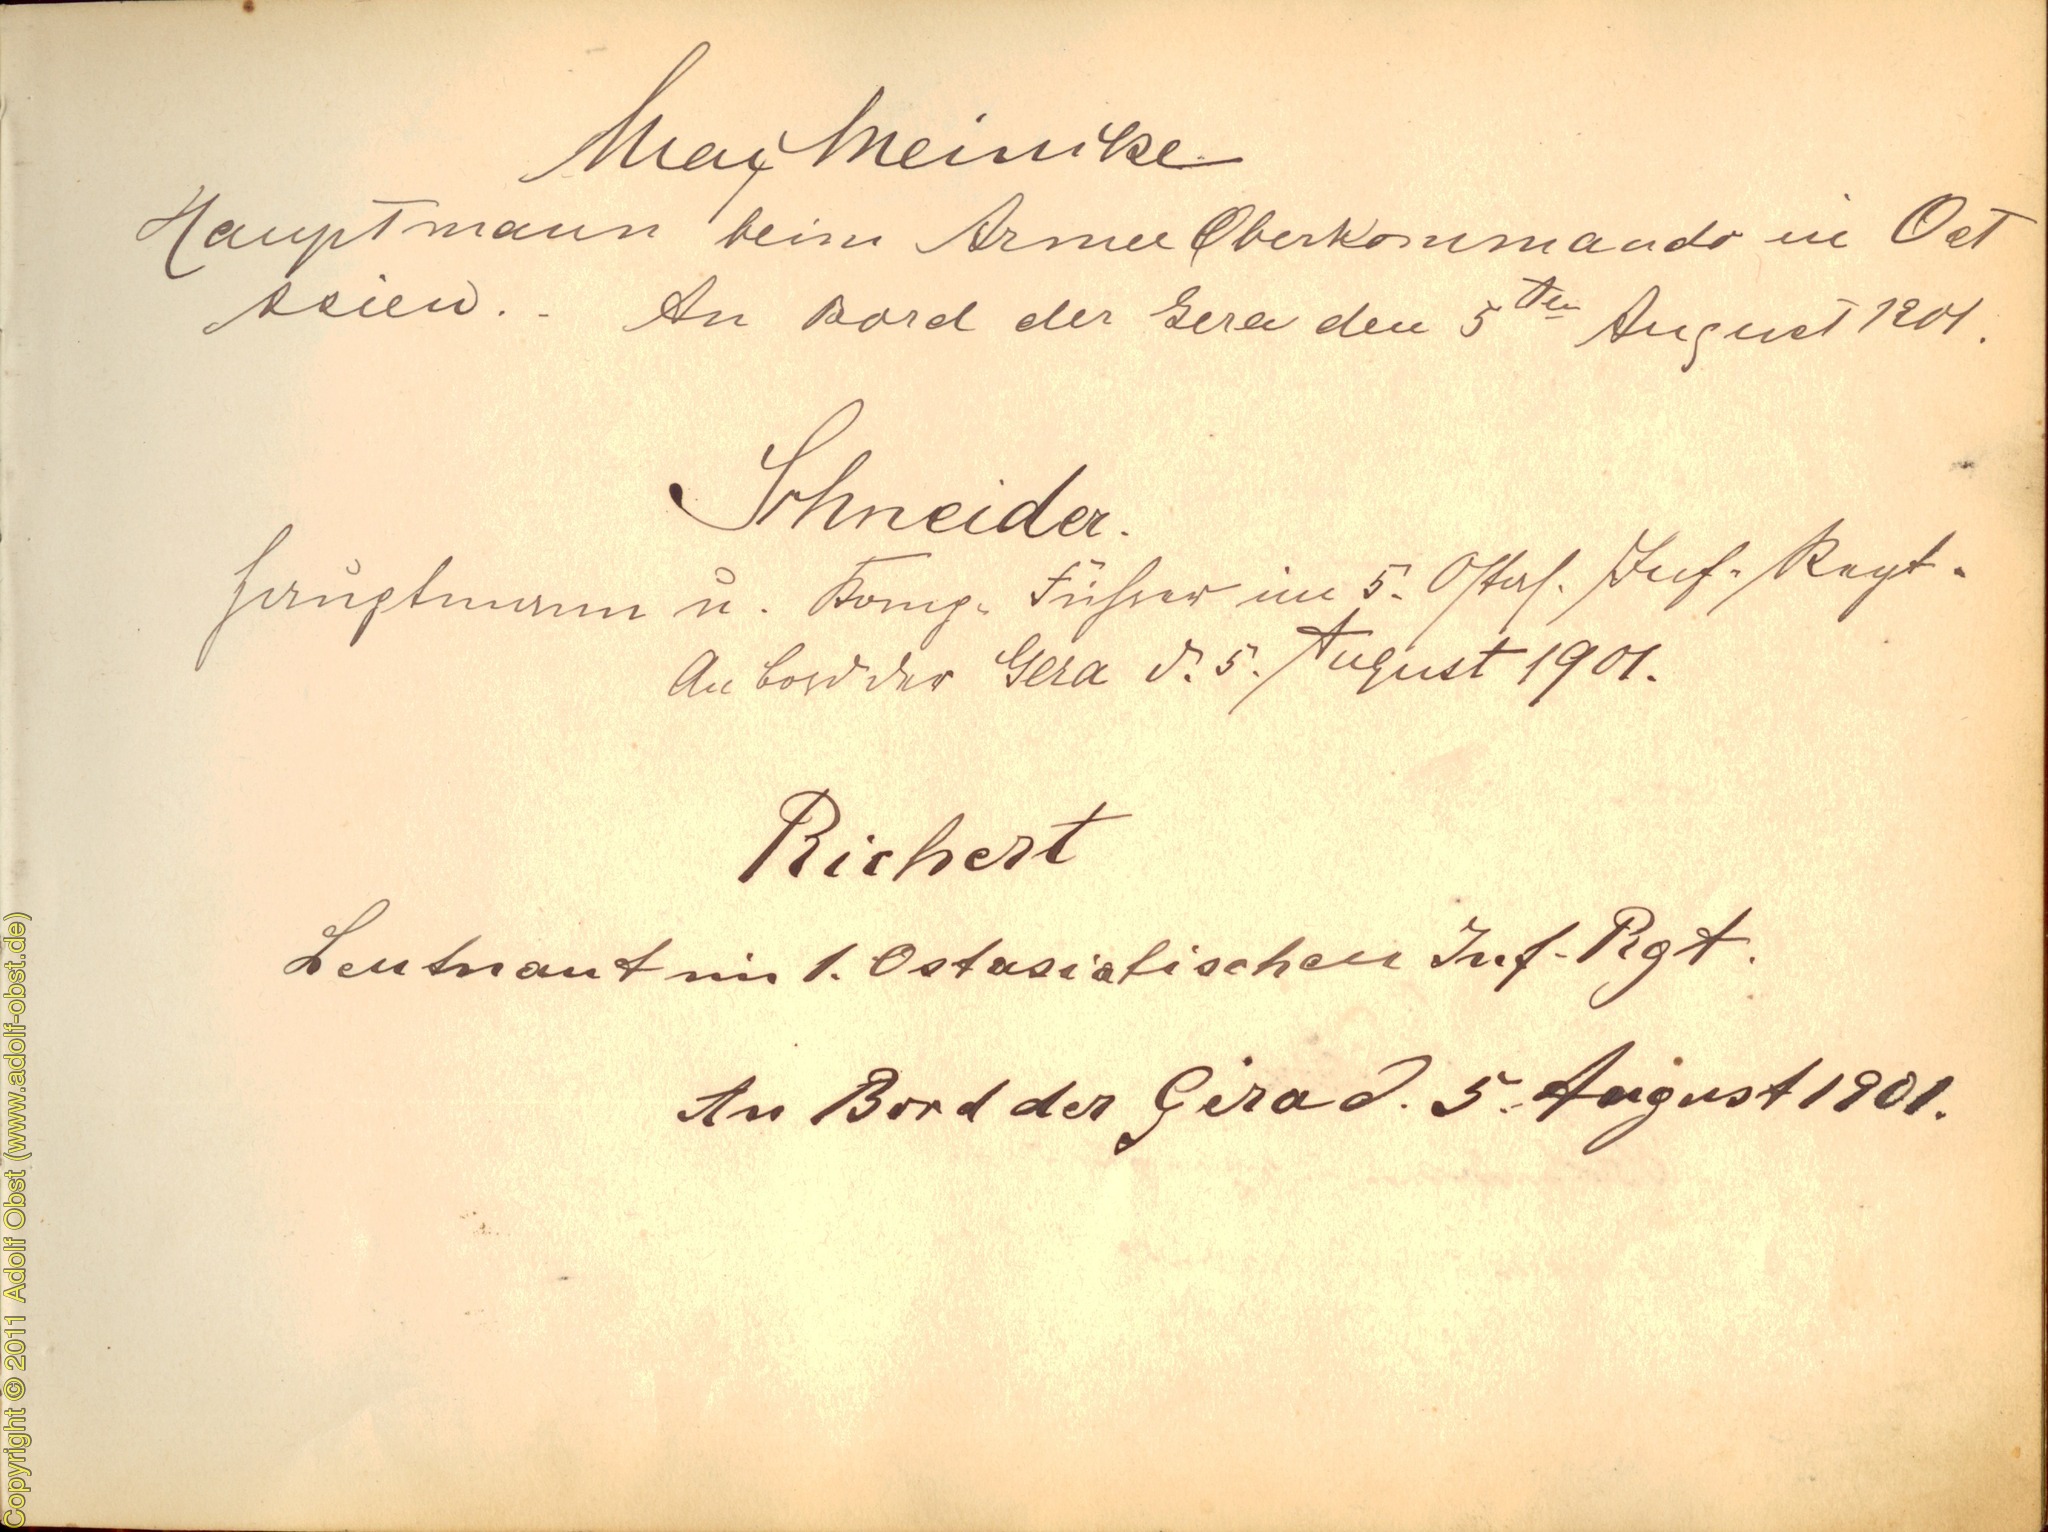 Max Meinicke
Hauptmann beim Armee Oberkommando in Ost
Asien. - An Bord der Gera den 5ten August 1901.
Schneider.
Hauptmann u. Komp. Führer im 5. Ostas. Inf. Regt.
An bord der Gera d. 5. August 1901.
Richert
Leutnant im 1. Ostasiatischen Inf.-Rgt.
An Bord der Gera d. 5. August 1901.
Copyright © 2011 Adolf Obst (www.adolf-obst.de)